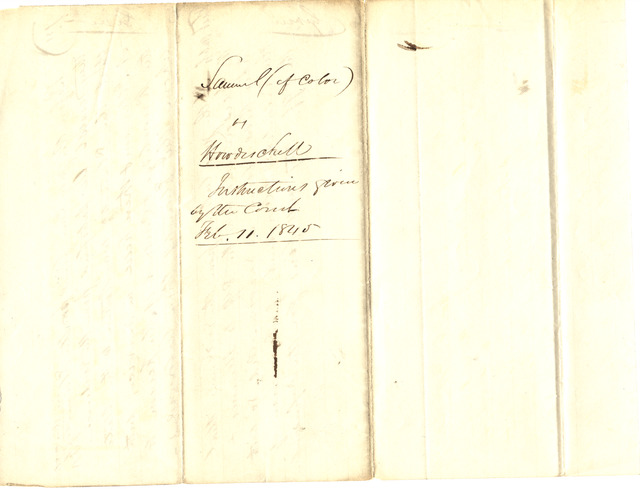 Samuel (of Color)
vs
Howdeschell
Instructions given
by the Court
Feb. 11. 1845